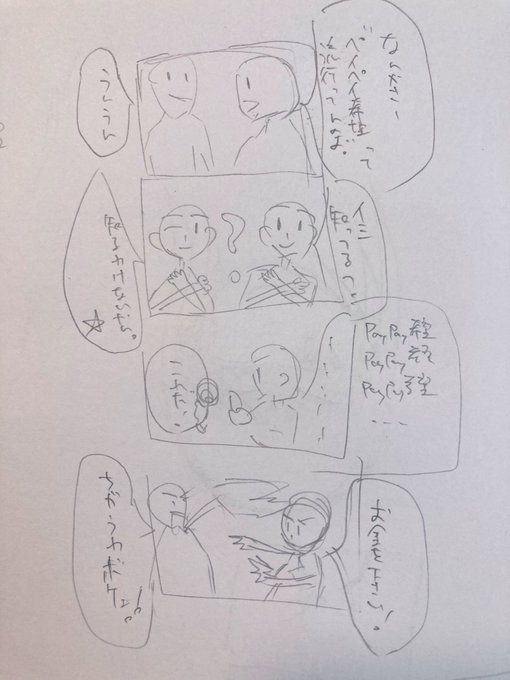 なんかさー
ペイペイ
って
流行ってん
うんうん
イミ
知ってる
知るわけないじゃん。☆
PayPay経
PayPay経
PayPay経
...
お金を下さい!
ちがうわボケェ!!